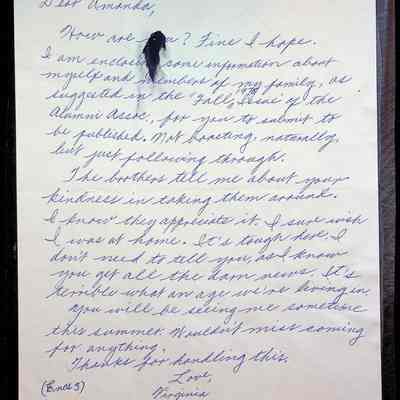 Dear Amanda,
How are u? Fine I hope.
I am enclosing some information about
myself and members of my family, as
suggested in the "Fall, Issue" of the
Alumni Assoc., for you to submit to
be published. Not boasting, naturally,
but just following through.
The brothers tell me about your
kindness in taking them around.
I know they appreciate it. I sure wish
I was at home. It's tough here. I
don't need to tell you, as I know
you get all the darn news. It's
terrible what an age we're living in.
You will be seeing me sometime
this summer. Wouldn't miss coming
for anything.
Thanks for handling this.
Love,
(Encs) Virginia